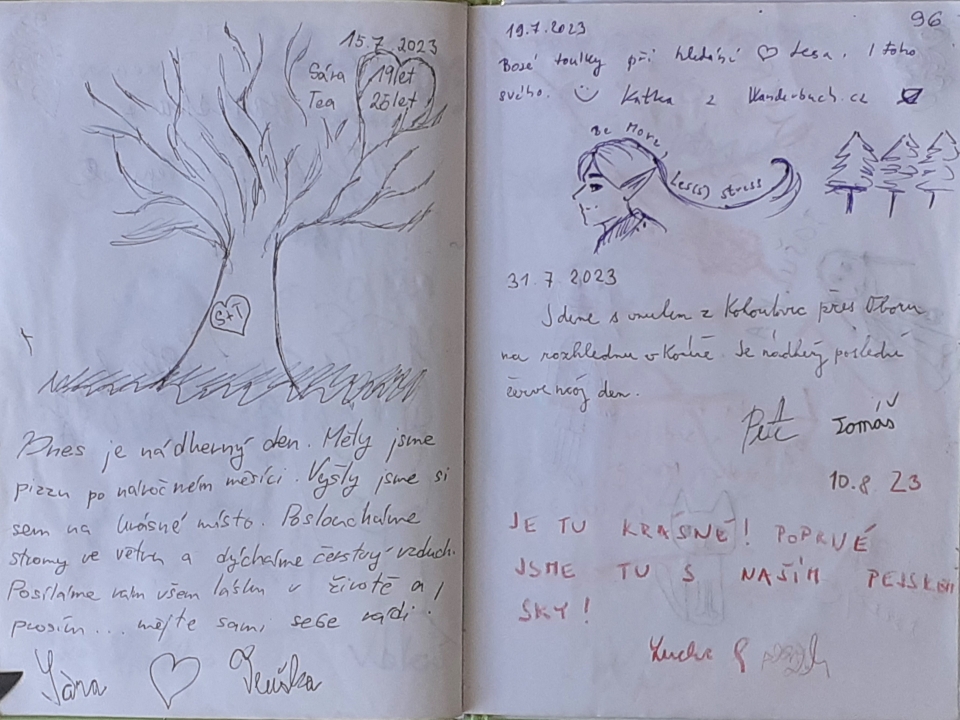 15.7.2023
Sára 19let
Tea 25let
S+T
Dnes je nádherný den. Měly jsme
pizzu po náročném měsíci. Vyšly jsme si
sem na krásné místo. Posloucháme
stromy ve větru a dýcháme čerstvý vzduch.
Posíláme vám všem lásku v životě a
prosím... mějte sami sebe rádi!
Sára ♡ Teuška
96
19.7.2023
Bosé toulky při hledání ♡ Lesa. I toho
svého. Katka z Wanderbuch.cz
Be More
Les(s) stress
31.7.2023
Jdeme s vnukem z Koloubvic přes Oboru
na rozhlednu v Korně. Je nádherný poslední
červencový den.
Petr Tomáš
10.8.23
JE TU KRÁSNĚ! POPRVÉ
JSME TU S NAŠÍM PEJSKEM
SKY!